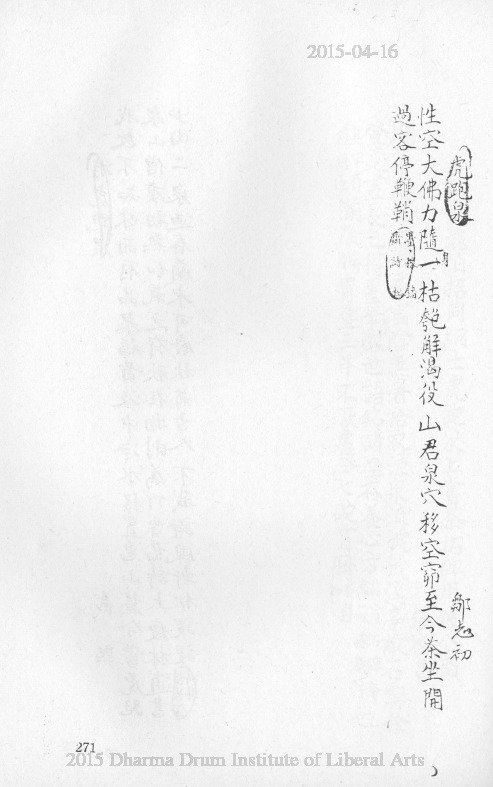 2015-04-16
虎跑泉
鄒志初
性空大佛力隨身一枯匏解渴役山君泉穴移空窌至今茶坐開
過客停鞭鞘
271
2015 Dharma Drum Institute of Liberal Arts